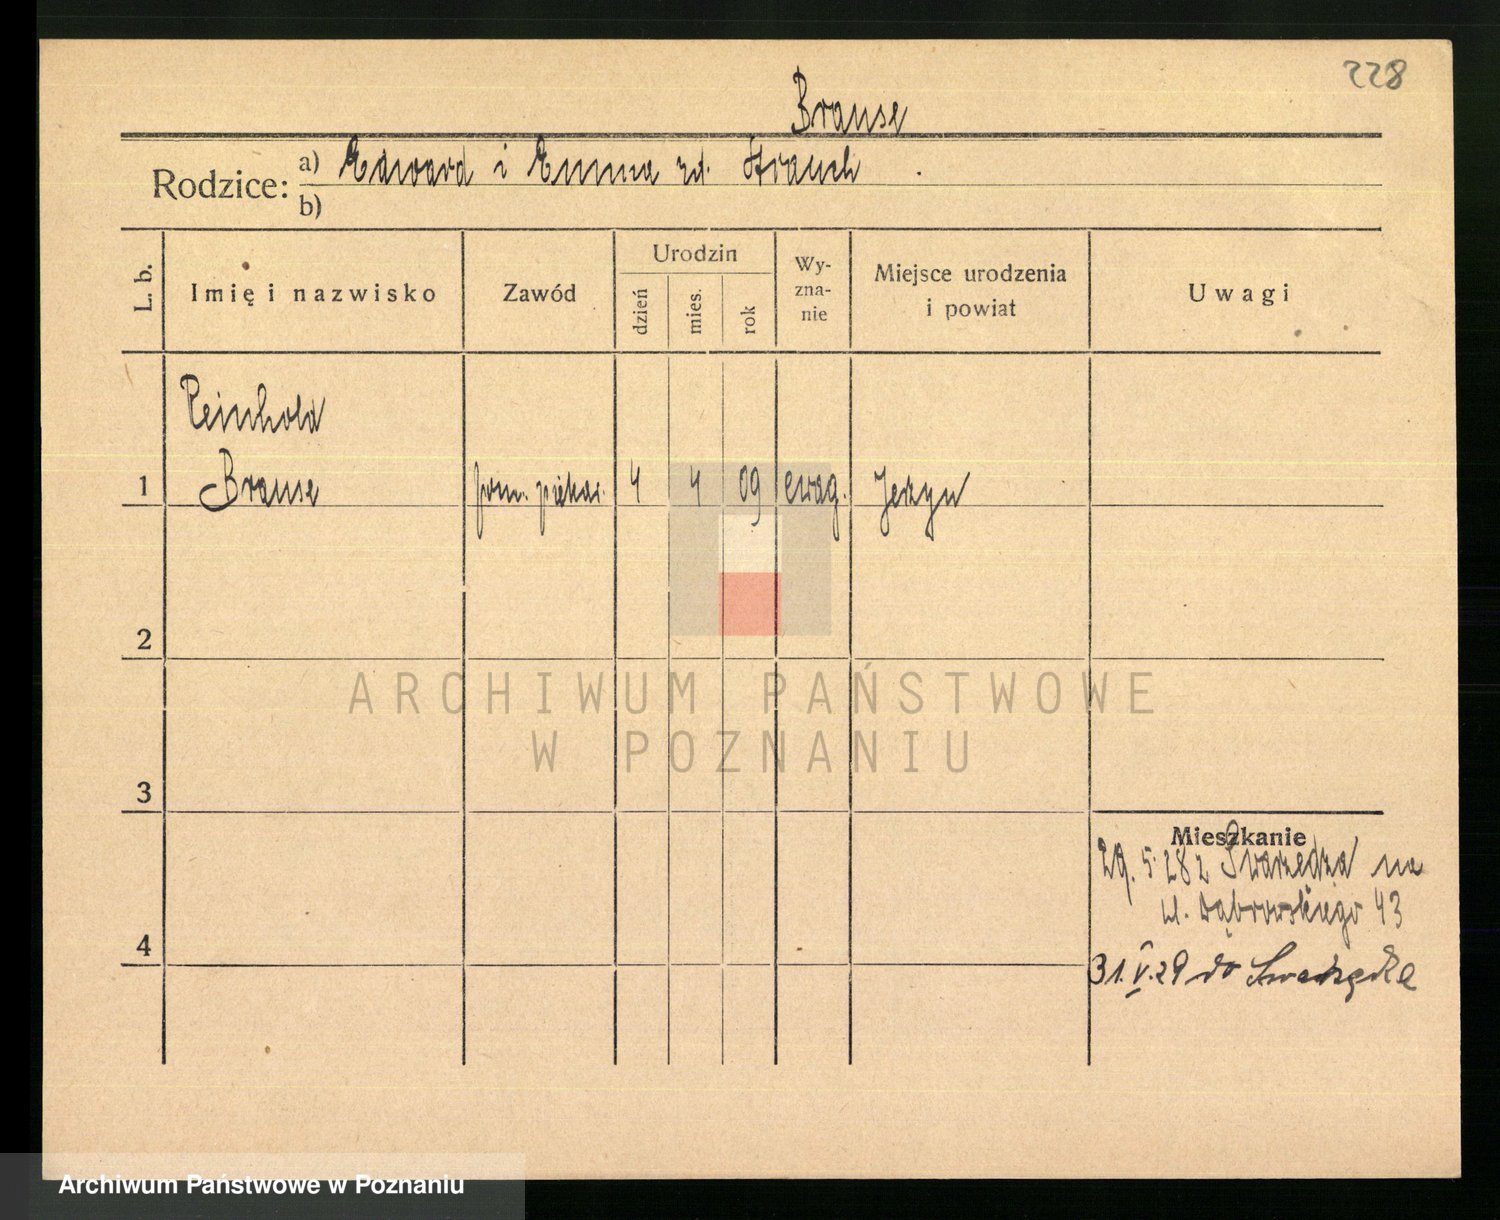 228
Brause
Rodzice: a) Edward i Emma zd. Strauch
b)
L. b.
Imię i nazwisko
Zawód
Urodzin
dzień
mies.
rok
Wy-
zna-
nie
Miejsce urodzenia
i powiat
Uwagi
Reinhold
1 Brause pom. piekar. 4 4 09 ewag. Jerzyn
2
ARCHIWUM PAŃSTWOWE
W POZNANIU
3
Mieszkanie
29. 5. 28 z Swarzędza na
ul. Dąbrowskiego 43
4
31.V.29 do Swarzędza
Archiwum Państwowe w Poznaniu